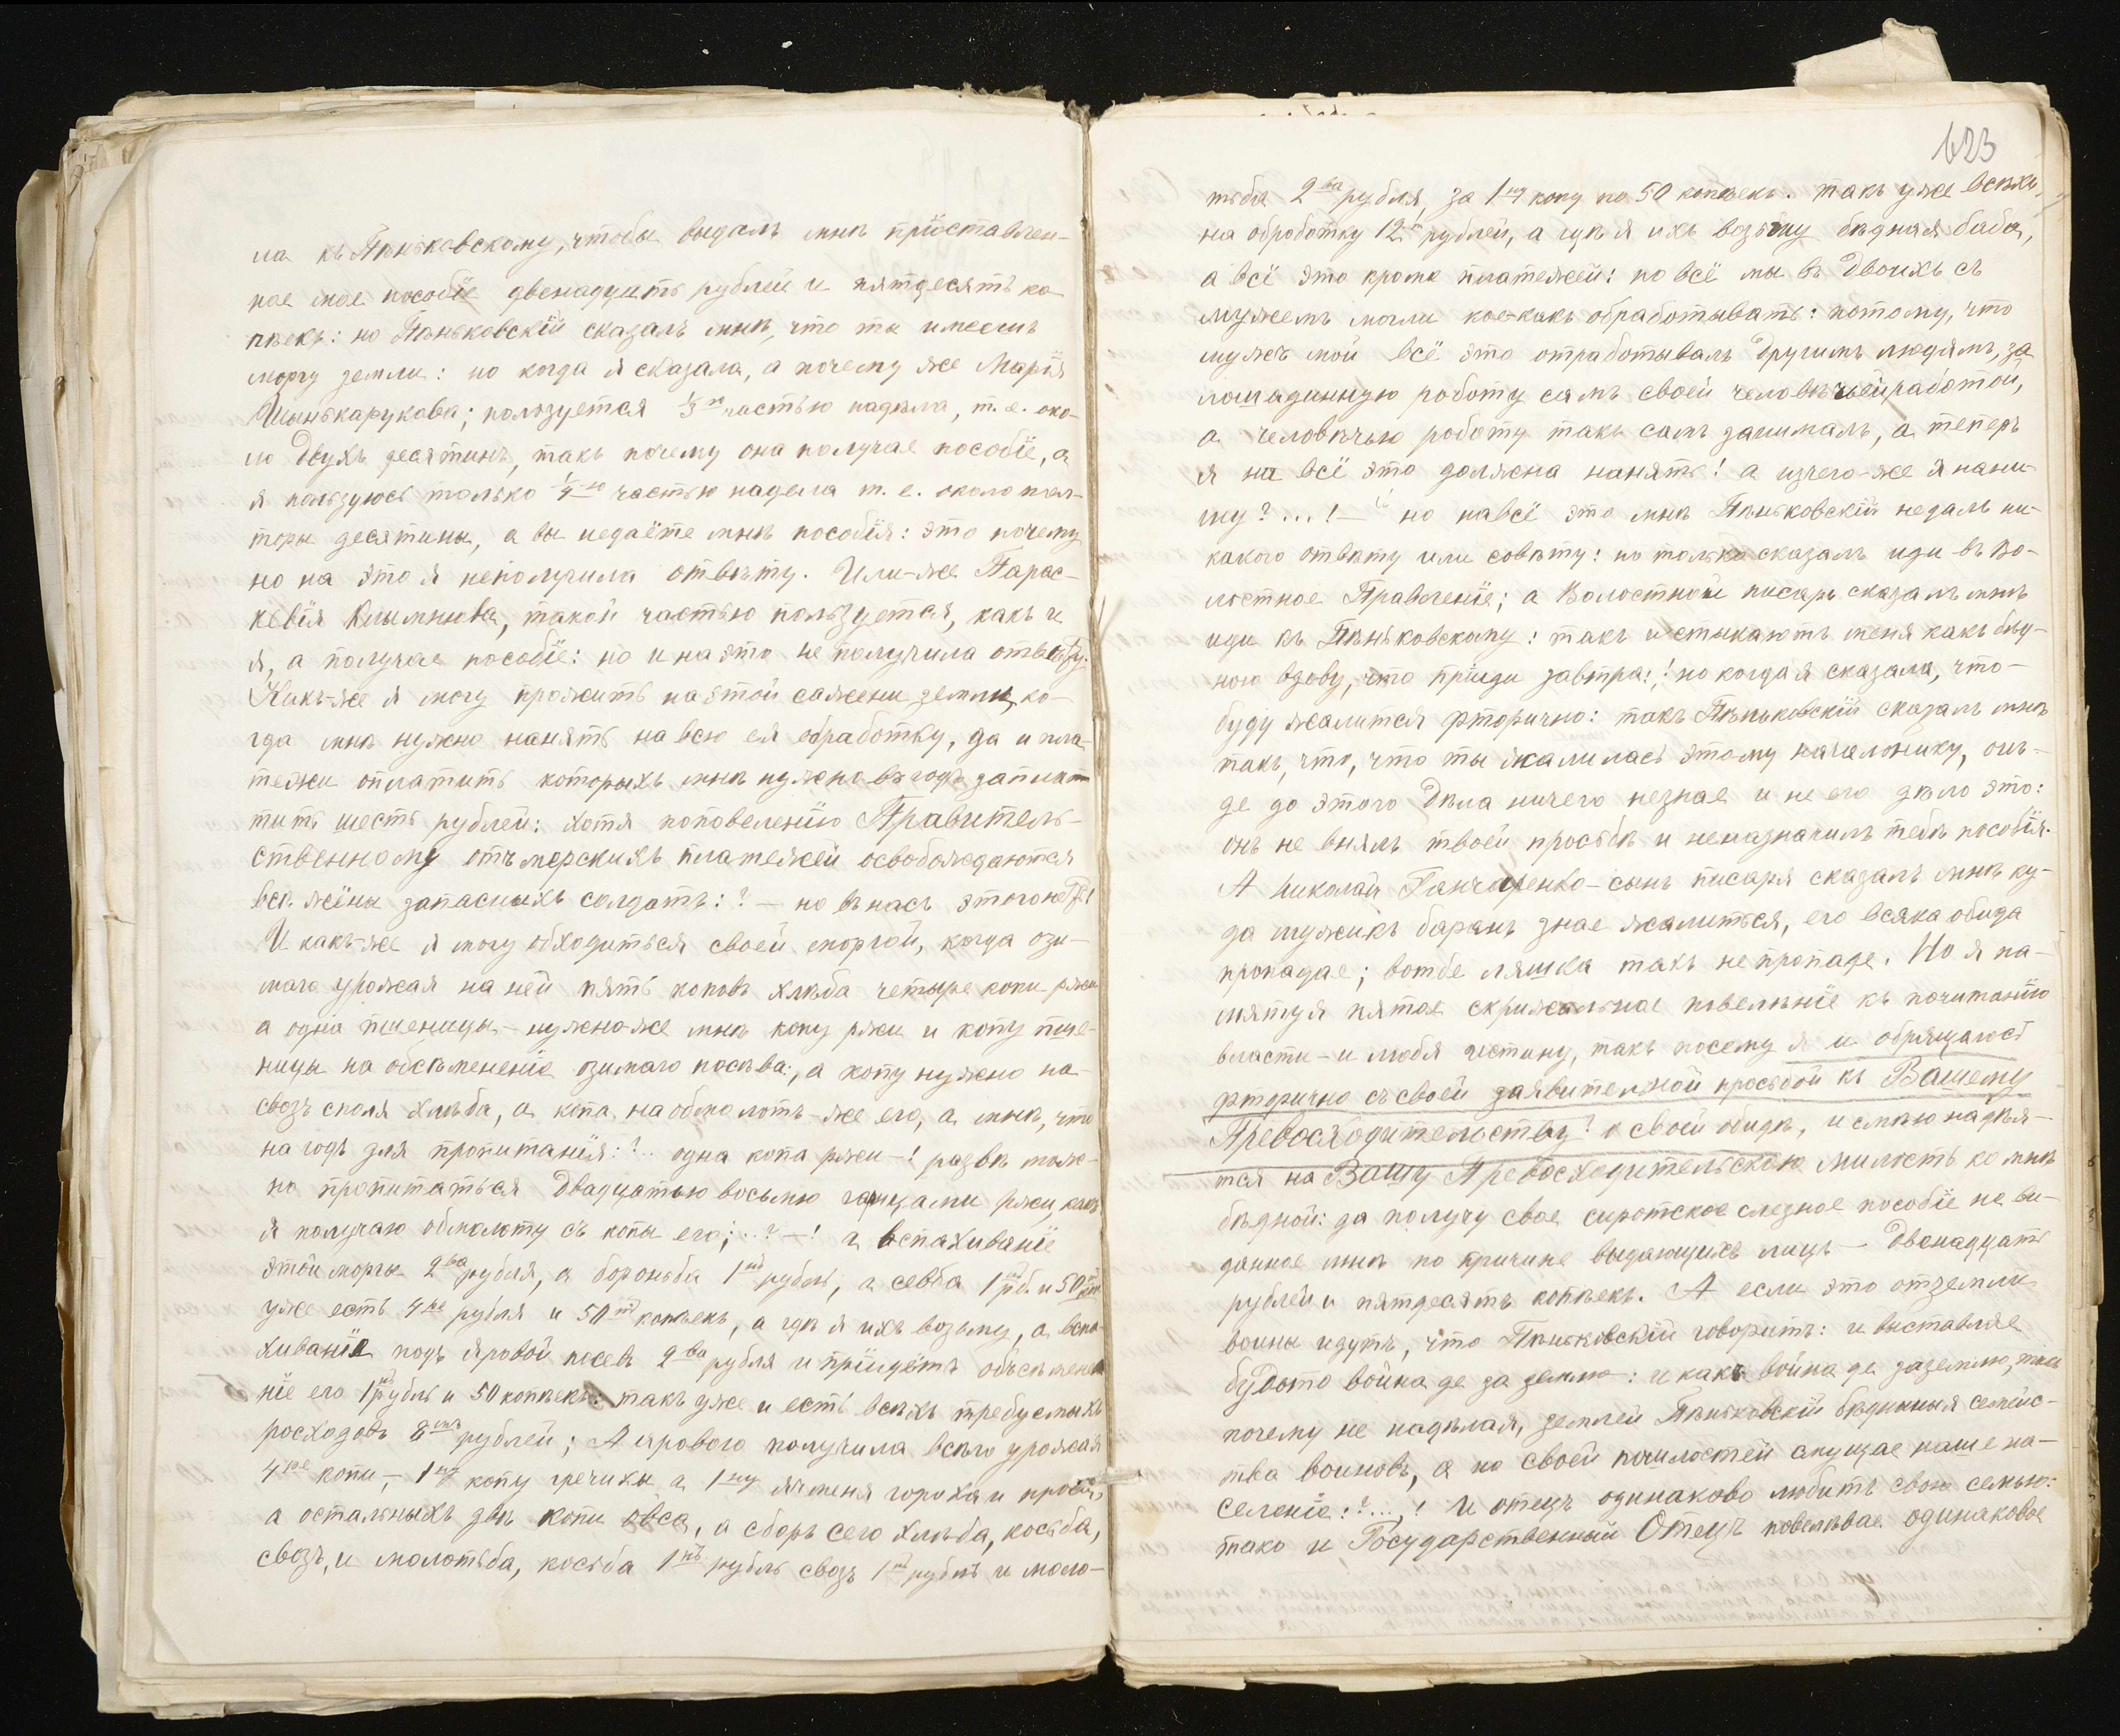 ла къ Паньковскому, чтобы выдалъ мнѣ пріоставлен-
ное мое пособіе двенадцать рублей и пятдесятъ ко-
пѣекъ: но Паньковскій сказалъ мнѣ, что ты имеешъ
моргу земли: но когда я сказала, а почему же Марія
пользуется 1/3ю частью надѣла, т. е. око-
ло двухъ десятинъ, такъ почему она получае пособіе, а
я пользуюсь только частью надела т. е. около пол-
торы десятины, а вы недаёте мнѣ пособія: это почему
но на это я неполучила отвѣту. Или-же Парас-
кевія такой частью пользуется, какъ и
я, а получае пособіе: но и на это не получила отвѣту.
Какъ-же я могу прожить на этой сажени земли, ко-
гда мнѣ нужно нанять на всю ея обработку, да и пла-
тежи оплатить которыхъ мнѣ нужно въ годъ запла-
тить шесть рублей: хотя поповеленію Правитель-
ственному отъ мерскихъ платежей освобождаются
всѣ жёны запасныхъ солдатъ: ? — но внасъ этого
И какъ-же я могу обходиться своей моргой, когда ози-
маго урожая на ней пять коповъ хлѣба четыре копы ржи
а одна пшеницы — нужно-же мнѣ копу ржи и копу пше-
ницы на обсѣмененіе озимаго посѣва:, а копу нужно на
свозъ споля хлѣба, а копа на обмолотъ-же его, а мнѣ, что
на годъ для пропитанія: ?.. одна копа ржи —! развѣ мож-
но пропитаться двадцатью восьмю гарцами ржи, какъ
я получаю обмолоту съ копы его; ..? —! а вспахиваніе
этой морги 2ва рубля, а бороньба 1нъ рубль, а севба 1 рб. и 50
уже есть 4ре рубля и 50тъ копѣекъ, а где я ихъ возьму, а вспа-
хиваніе подъ яровой посевъ 2ва рубля и прійдётъ объсѣмене-
ніе его 1 рубль и 50 копѣекъ: такъ уже и есть всѣхъ требуемыхъ
росходовъ 8мъ рублей; А ярового получила всѣго урожая
4ре копи, — 1ну копу гречихи а 1ну ячменя гороха и проса,
а остальныхъ двѣ копи овса, а сборъ сего хлѣба, косьба,
свозъ, и молотьба, косьба 1нъ рубль свозъ 1нъ рубль и моло-
623
тьба 2ва рубля, за 1ну копу по 50 копѣекъ. такъ уже всѣхъ
на обработку 12ть рублей, а где я ихъ возьму бѣдная баба,
а всё это кроме платежей: но всё мы въ двоихъ съ
мужемъ могли кое-какъ обработывать: потому, что
мужъ мой всё это отработывалъ другимъ людямъ, за
лошадинную роботу самъ своей человѣчьей работой,
а человѣчью роботу такъ самъ занималъ, а теперь
я на всё это должна нанять! а изчего-же я нани-
му? ...! — но навсё это мнѣ Паньковскій недалъ ни-
какого отвѣту или совѣту: но только сказалъ иди въ Во-
лостное Правленіе; а Волостной писарь сказалъ мнѣ
иди къ Паньковскому: такъ и стыкаютъ меня какъ бѣд-
ною вдову, что прійди завтра:,! но когда я сказала, что-
буду жалится вторично: такъ Паньковскій сказалъ мнѣ
такъ, что, что ты жалилась этому начальнику, онъ-
де до этого дѣла ничего незнае и не его дѣло это:
онъ не внялъ твоей просьбѣ и неназначилъ тебѣ пособія.
А Николай Ганчаренко — сынъ писаря сказалъ мнѣ ку-
да мужикъ баранъ знае жалиться, его всяка обида
пропадае; вотбе ляшка такъ не пропаде. Но я па-
мятуя пятое скрижальное повелѣніе къ почитанію
власти — и любя истину, такъ посему я и обрящаюсь
вторично съ своей заявительной просьбой къ Вашему
Превосходительству? о своей обидѣ, и смѣю надѣя-
тся на Вашу Превосходительскою милость ко мнѣ
бѣдной: да получу свое сиротское слезное пособіе не ви-
данное мнѣ по причине выдающихъ лицъ — двенадцать
рублей и пятдесятъ копѣекъ. А если это отземли
воины идутъ, что Паньковскій говоритъ: и выставляе
будьто война де за землю: и какъ война де заземлю,
почему не надѣлая, землей Паньковскій бѣдныя семейс-
тва воиновъ, а по своей почилостей наше на-
селеніе: ?...,! И отецъ одинаково любитъ свою семью:
тако и Государственный Отецъ повелѣвае одинаковое